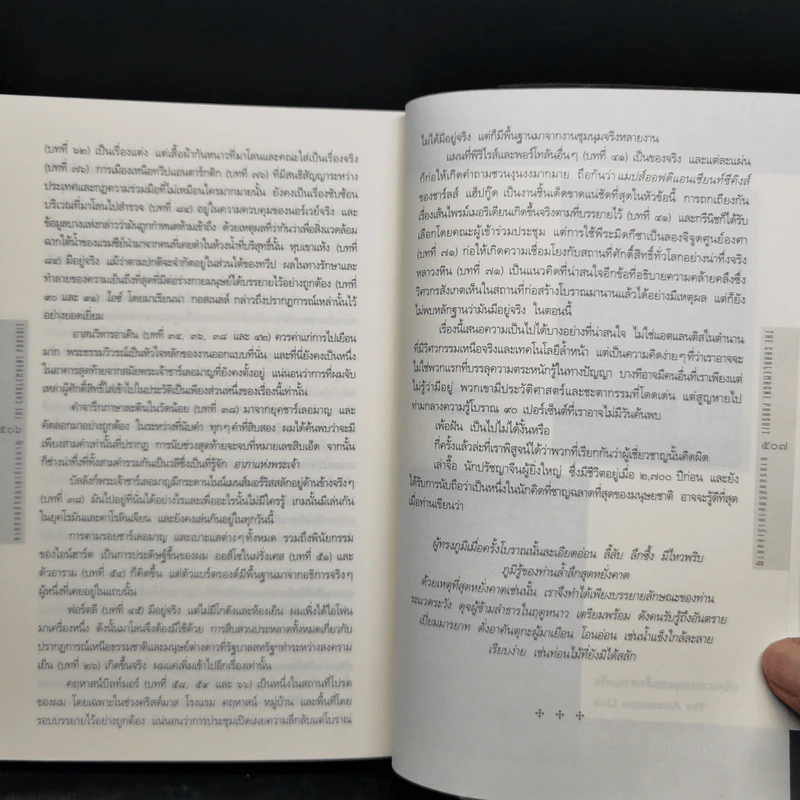 (บทที่ ๖๒) เป็นเรื่องแต่ง แต่เสื้อผ้ากันหนาวที่มาโลนและคณะใส่เป็นเรื่องจริง
(บทที่ ๗๖) การเมืองเหนือทวีปแอนตาร์กติก (บทที่ ๗๖) ที่มีสนธิสัญญาระหว่าง
ประเทศและกฎความร่วมมือที่ไม่เหมือนใครมากมายนั้น ยังคงเป็นเรื่องซับซ้อน
บริเวณที่มาโลนไปสำรวจ (บทที่ ๘๔) อยู่ในความควบคุมของนอร์เวย์จริง และ
ข้อมูลบางแห่งกล่าวว่ามันถูกกำหนดห้ามเข้าถึง ด้วยเหตุผลที่ว่ากันว่าเพื่อสิ่งแวดล้อม
ฉากใต้น้ำของแรมซีย์นำมาจากคนที่เคยดำในห้วงน้ำที่บริสุทธิ์นั้น หุบเขาแห้ง (บทที่
๘๔) มีอยู่จริง แม้ว่าตามปกติจะจำกัดอยู่ในส่วนใต้ของทวีป ผลในทางรักษาและ
ทำลายของความเย็นถึงที่สุดที่มีต่อร่างกายมนุษย์ได้บรรยายไว้อย่างถูกต้อง (บทที่
๙๐ และ ๙๑) ไอซ์ โดยมาเรียนนา กอสเนลล์ กล่าวถึงปรากฏการณ์เหล่านั้นไว้
อย่างยอดเยี่ยม
อาสนวิหารอาเค็น (บทที่ ๓๔, ๓๖, ๓๘ และ ๔๒) ควรค่าแก่การไปเยือน
มาก พระธรรมวิวรณ์เป็นหัวใจหลักของงานออกแบบที่นั่น และที่นี่ยังคงเป็นหนึ่ง
ในอาคารสุดท้ายจากสมัยพระเจ้าชาร์เลอมาญที่ยังคงตั้งอยู่ แน่นอนว่าการที่ผมจับ
เหล่าผู้ศักดิ์สิทธิ์ใส่เข้าไปในประวัติเป็นเพียงส่วนหนึ่งของเรื่องนี้เท่านั้น
คำจารึกภาษาละตินในวัดน้อย (บทที่ ๓๘) มาจากยุคชาร์เลอมาญ และ
คัดลอกมาอย่างถูกต้อง ในระหว่างที่นับคำ ทุกๆ คำที่สิบสอง ผมได้ค้นพบว่าจะมี
เพียงสามคำเท่านั้นที่ปรากฏ การนับช่วงสุดท้ายจะจบที่หมายเลขสิบเอ็ด จากนั้น
ก็ช่างน่าทึ่งที่ทั้งสามคำรวมกันเป็นวลีซึ่งเป็นที่รู้จัก อาภาแห่งพระเจ้า
บัลลังก์พระเจ้าชาร์เลอมาญมีกระดานในน์เมนส์มอร์ริสสลักอยู่ด้านข้างจริงๆ
(บทที่ ๓๘) มันไปอยู่ที่นั่นได้อย่างไรและเพื่ออะไรนั้นไม่มีใครรู้ เกมนั้นมีเล่นกัน
ในยุคโรมันและคาโรลินเจียน และยังคงเล่นกันอยู่ในทุกวันนี้
การตามรอยชาร์เลอมาญ และเบาะแสต่างๆ ทั้งหมด รวมถึงพินัยกรรม
ของไอน์ฮาร์ด เป็นการประดิษฐ์ขึ้นของผม ออสไซไนฝรั่งเศส (บทที่ ๕๑) และ
ตัวอาราม (บทที่ ๕๔) ก็คิดขึ้น แต่ตัวแบร์ตรองด์มีพื้นฐานมาจากอธิการจริงๆ
ผู้หนึ่งที่เคยอยู่ในแถบนั้น
ฟอร์ตลี (บทที่ ๔๕) มีอยู่จริง แต่ไม่มีโกดังและห้องเย็น ผมเพิ่งได้ไอโฟน
มาเครื่องหนึ่ง ดังนั้นมาโลนจึงต้องมีใช้ด้วย การสืบสวนประหลาดทั้งหมดเกี่ยวกับ
ปรากฏการณ์เหนือธรรมชาติและมนุษย์ต่างดาวที่รัฐบาลสหรัฐฯ ทำระหว่างสงคราม
เย็น (บทที่ ๒๖) เกิดขึ้นจริง ผมแค่เพิ่มเข้าไปอีกเรื่องเท่านั้น
คฤหาสน์บิลท์มอร์ (บทที่ ๕๘, ๕๙ และ ๖๖) เป็นหนึ่งในสถานที่โปรด
ของผม โดยเฉพาะในช่วงคริสต์มาส โรงแรม คฤหาสน์ หมู่บ้าน และพื้นที่โดย
รอบบรรยายไว้อย่างถูกต้อง แน่นอนว่าการประชุมเปิดเผยความลึกลับแต่โบราณ
๕๐๖
ไม่ได้มีอยู่จริง แต่ก็มีพื้นฐานมาจากงานชุมนุมจริงหลายงาน
แผนที่พิริไรส์และพอร์โทลันอื่นๆ (บทที่ ๔๑) เป็นของจริง และแต่ละแผ่น
ก็ก่อให้เกิดคำถามชวนงุนงงมากมาย ถือกันว่า แมปส์ออฟดิแอนเชียนท์ซีคิงส์
ของชาร์ลส์ แฮ็ปกู๊ด เป็นงานชิ้นเด็ดขาดแน่ชัดที่สุดในหัวข้อนี้ การถกเถียงกัน
เรื่องเส้นไพรม์เมอริเดียนเกิดขึ้นจริงตามที่บรรยายไว้ (บทที่ ๔๑) และกรีนิชก็ได้รับ
เลือกโดยคณะผู้เข้าร่วมประชุม แต่การใช้พีระมิดกีซาเป็นลองจิจูดศูนย์องศา
(บทที่ ๗๑) ก่อให้เกิดความเชื่อมโยงกับสถานที่ศักดิ์สิทธิ์ทั่วโลกอย่างน่าทึ่งจริง
หลางหิน (บทที่ ๗๑) เป็นแนวคิดที่น่าสนใจอีกข้อที่อธิบายความคล้ายคลึงซึ่ง
วิศวกรสังเกตเห็นในสถานที่ก่อสร้างโบราณมานานแล้วได้อย่างมีเหตุผล แต่ก็ยัง
ไม่พบหลักฐานว่ามันมีอยู่จริง ในตอนนี้
เรื่องนี้เสนอความเป็นไปได้บางอย่างที่น่าสนใจ ไม่ใช่แอตแลนติสในตำนาน
ที่มีวิศวกรรมเหนือจริงและเทคโนโลยีล้ำหน้า แต่เป็นความคิดง่ายๆ ที่ว่าเราอาจจะ
ไม่ใช่พวกแรกที่บรรลุความตระหนักรู้ในทางปัญญา บางทีอาจมีคนอื่นที่เราเพียงแต่
ไม่รู้ว่ามีอยู่ พวกเขามีประวัติศาสตร์และชะตากรรมที่โดดเด่น แต่สูญหายไป
ท่ามกลางความรู้โบราณ ๙๐ เปอร์เซ็นต์ที่เราอาจไม่มีวันค้นพบ
เพ้อฝัน เป็นไปไม่ได้งั้นหรือ
กี่ครั้งแล้วล่ะที่เราพิสูจน์ได้ว่าพวกที่เรียกกันว่าผู้เชี่ยวชาญนั้นคิดผิด
เล่าจื๊อ นักปรัชญาจีนผู้ยิ่งใหญ่ ซึ่งมีชีวิตอยู่เมื่อ ๒,๗๐๐ ปีก่อน และยัง
ได้รับการนับถือว่าเป็นหนึ่งในนักคิดที่ชาญฉลาดที่สุดของมนุษยชาติ อาจจะรู้ดีที่สุด
เมื่อท่านเขียนว่า
ผู้ทรงภูมิเมื่อครั้งโบราณนั้นละเอียดอ่อน ลี้ลับ ลึกซึ้ง มีไหวพริบ
ภูมิรู้ของท่านล้ำลึกสุดหยั่งคาด
ด้วยเหตุที่สุดหยั่งคาดเช่นนั้น เราจึงทำได้เพียงบรรยายลักษณะของท่าน
ระแวดระวัง ดุจผู้ข้ามลำธารในฤดูหนาว เตรียมพร้อม ดังคนรับรู้ถึงอันตราย
เปี่ยมมารยาท ดั่งอาคันตุกะผู้มาเยือน โอนอ่อน เช่นน้ำแข็งใกล้ละลาย
เรียบง่าย เช่นท่อนไม้ที่ยังมิได้สลัก
THE CHARLEMAGNE PURSUIT
๕๐๗